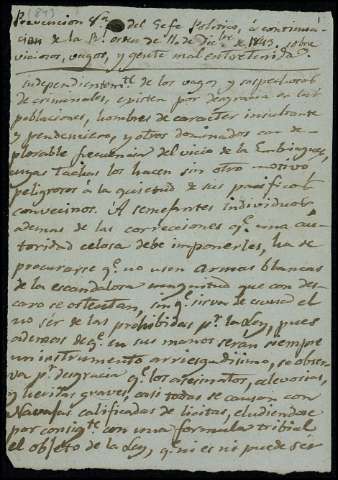 (84)
1
Prevencion 8ª del Gefe Politico, á continua-
cion de la Rl. orden de 11 de Dicbre. de 1843, sobre
viciosos, vagos, y gente mal entretenida.
Independientemte. de los vagos y sospechosos
de criminales, existen por desgracia en las
poblaciones, hombres de caracter insultante
y pendenciero, y otros dominados con de-
plorable frecuencia del vicio de la Embriaguez,
cuyas tachas los hacen sin otro motivo
peligrosos á la quietud de sus pacificos
convecinos. A semejantes individuos
ademas de las correcciones qe. una au-
toridad celosa debe imponerles, ha de
procurarse qe. no usen armas blancas
de la escandalosa magnitud que con des-
caro se ostentan, sin qe. sirva de escusa el
no sér de las prohibidas pr. la Ley, pues
ademas de qe. en sus manos serán siempre
un instrumento arriesgadisimo, se obser-
va pr. desgracia qe. los asesinatos, alevosias,
y heridas graves, casi todas se causan con
Navajas calificadas de licitas, eludiendose
por consigte. con una formula tribial
el objeto de la Ley, qe. ni es ni puede sér